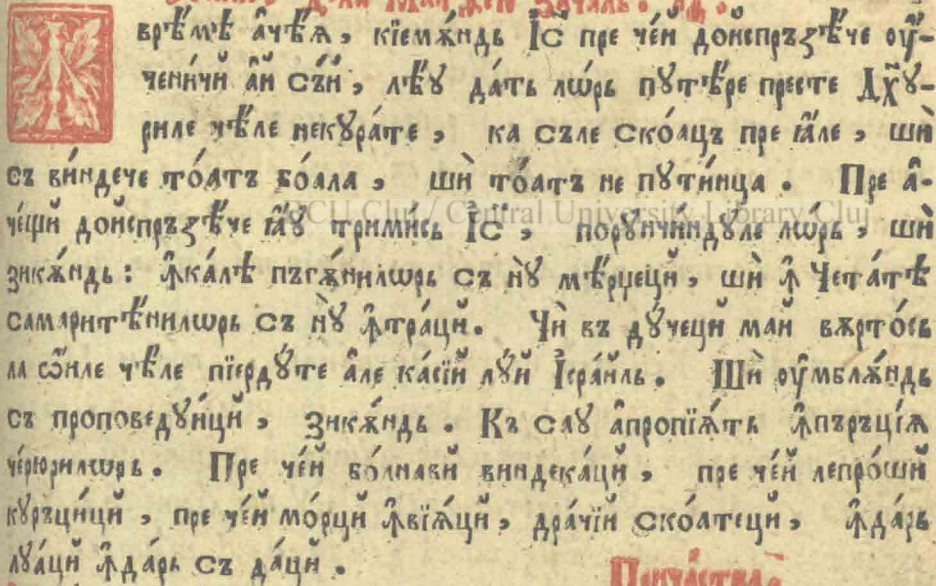 врѣмѣ а҆чѣѧ, кїемѫндь І҆с҃ пре че́й дои́спръзѣче оу҆-
чени́чй а҆й съ́й, лѣꙋ да́ть лѡрь пꙋтѣре престе Дх҃ꙋ-
риле чѣле некꙋра́те, ка съле ско́ацъ пре ꙗ҆ле, шѝ
съ ви́ндече то́атъ бо́ала, шѝ то́атъ непꙋти́нца. Пре а҆-
че́щй дои́спръзѣче ꙗ҆ꙋ трими́сь І҆с҃, порꙋ́нчиндꙋле лѡрь, шѝ
зикѫ́ндь: ꙟкалѣ пъгѫ́нилѡрь съ нꙋ̀ мѣ́рџецй, шѝ ꙟ Чета́тѣ
самаритѣ́нилѡрь съ нꙋ̀ ꙟтра́цй. Чѝ въ дꙋ́чецй май вѫрто́сь
ла ѻ҆иле чѣле пїердꙋ́те а҆ле ка́сїй лꙋ́й І҆сра́иль. Шѝ оу҆мблѫ́ндь
съ проповедꙋи́цй, зикѫ́ндь. Къ саꙋ а҆пропїѧ́ть ꙟпъръцїѧ
че́рюрилѡрь. Пре че́й бо́лнави виндека́цй, пре че́й лепро́шй
кꙋръци́цй, пре че́й мо́рцй ꙟвїѧ́цй, дра́чїй ско́атецй, ꙟда́рь
лꙋа́цй ꙟда́рь съ да́цй.